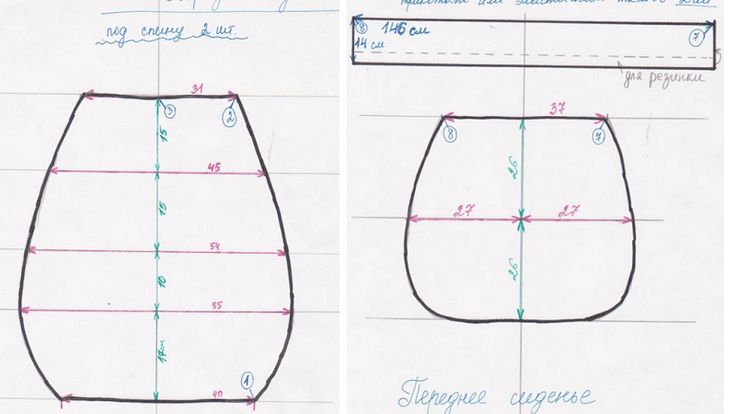 под спину 2 шт.
31
3
2
15
45
15
54
10
55
17см
1
40
8 146 см 7
14 см
для резинки
37
8
7
26
27
27
26
Переднее сиденье